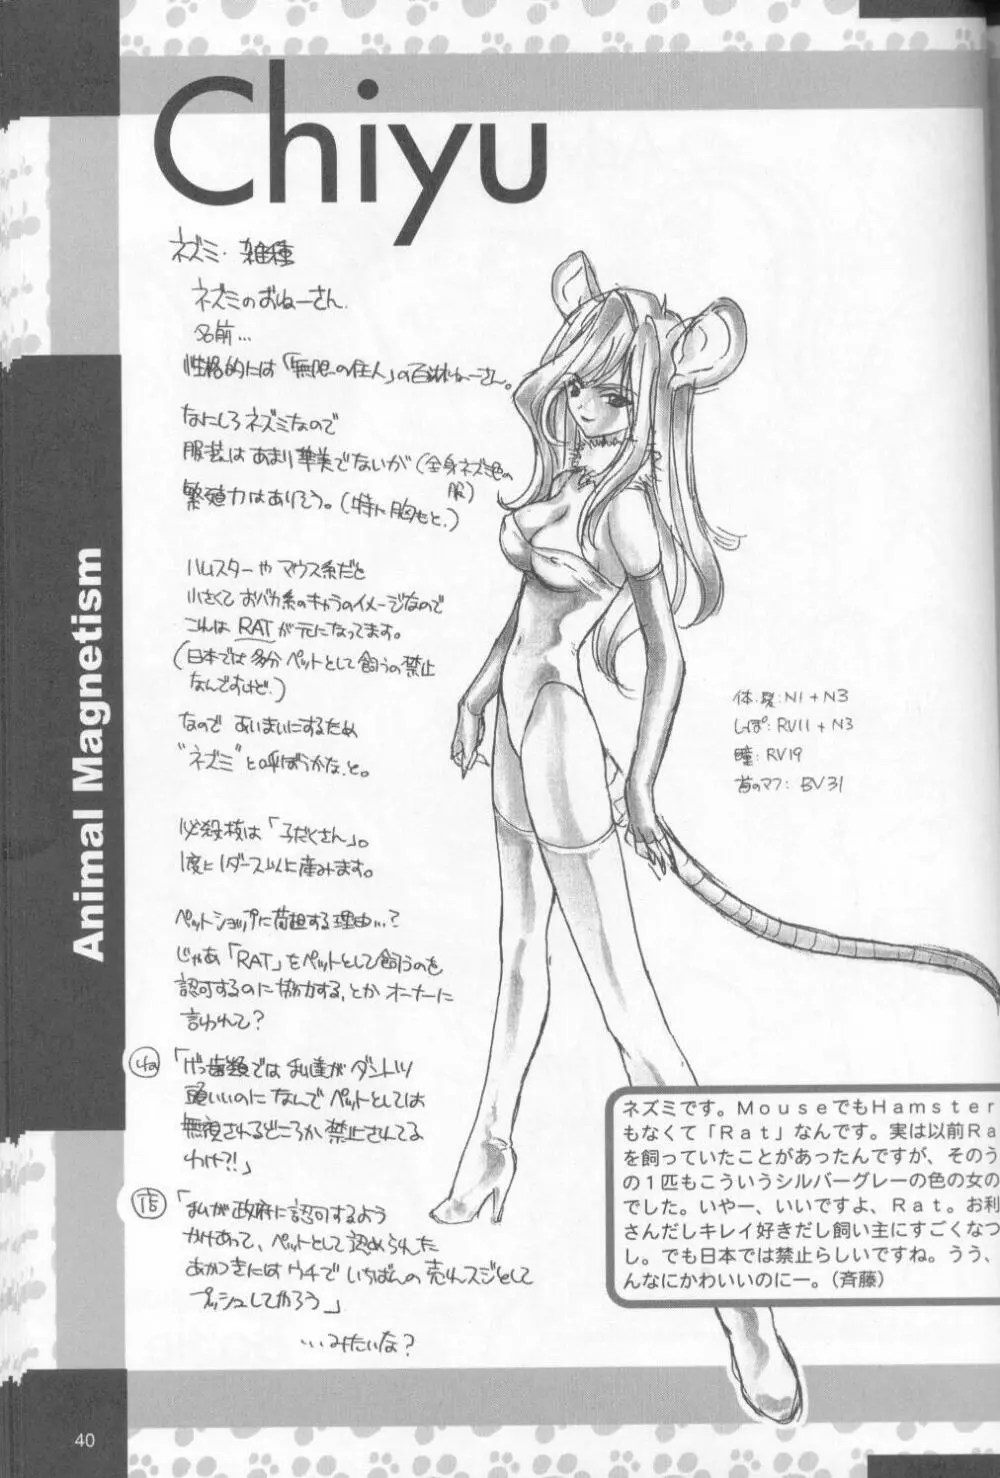 Chiyu
ネズミ・雑種
ネズミのおねーさん.
名前...
性格的には「無限の住人」の百琳ねーさん。
なにしろネズミなので
服装はあまり華美でないが(全身ネズミ色の
服)
繁殖力はありそう。(特に胸もと.)
ハムスターやマウス系だと
小さくておバカ系のキャラのイメージなので
これはRATが元になってます。
(日本では多分ペットとして飼うの禁止
なんですけど.)
なので あいまいにするため
"ネズミ"と呼ぼうかな.と。
必殺技は「子だくさん」。
1度に1ダース以上産みます。
ペットショップに荷担する理由...?
じゃあ「RAT」をペットとして飼うのを
認可するのに協力する,とかオーナーに
言われて?
ね「げっ歯類では私達がダントツ
頭いいのになんでペットとしては
無視されるどころか禁止されてる
わけ?!」
店「私が政府に認可するよう
かけあって、ペットとして認められた
あかつきにはウチでいちばんの売れスジとして
プッシュしてやろう」
...みたいな?
体.髪:N1+N3
しっぽ:RV11+N3
瞳:RV19
首のマフ:BV31
ネズミです。MouseでもHamster
もなくて「Rat」なんです。実は以前Ra
を飼っていたことがあったんですが、そのう
の1匹もこういうシルバーグレーの色の女の
でした。いやー、いいですよ、Rat。お利
さんだしキレイ好きだし飼い主にすごくなつ
し。でも日本では禁止らしいですね。うう、
んなにかわいいのにー。(斉藤)
Animal Magnetism
40